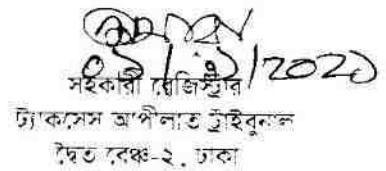 ০১/০১/2020
সহকারী রেজিস্ট্রার
ট্যাকসেস আপীলাত ট্রাইবুনাল
দ্বৈত বেঞ্চ-২, ঢাকা